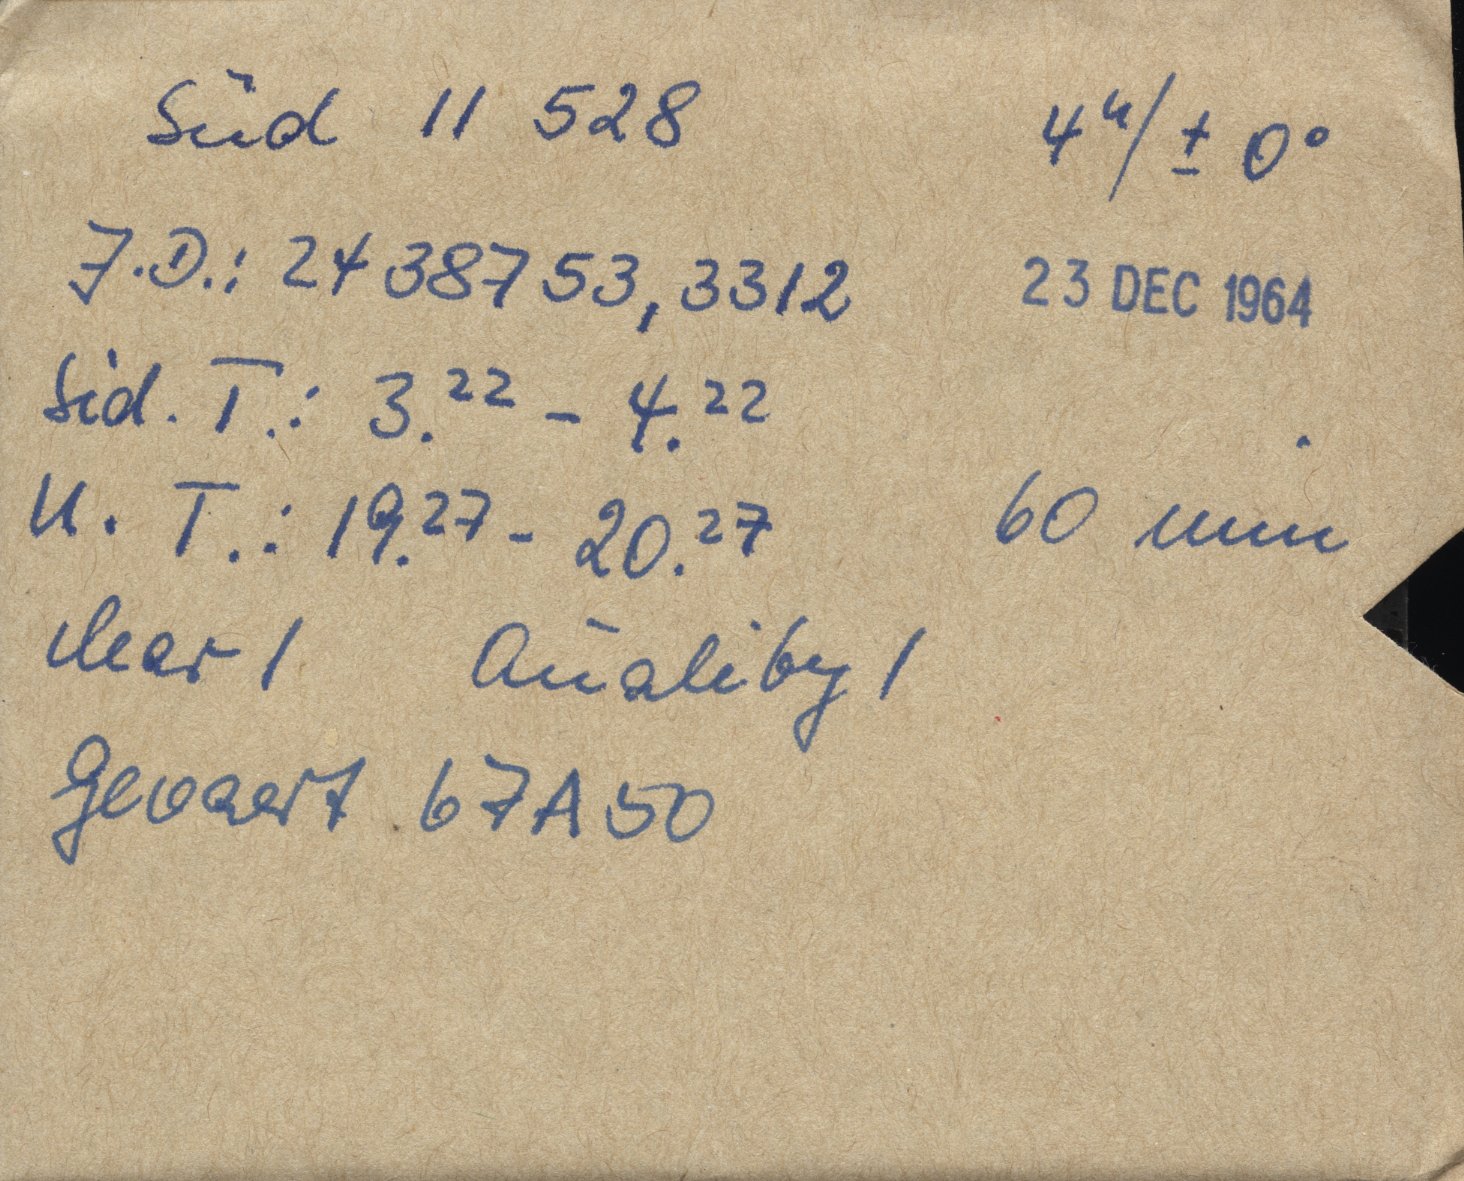 Süd 11 528 4ʰ/± 0°
J.D.: 24 38753,3312 23 DEC 1964
Sid. T.: 3.²² - 4.²²
U. T.: 19.²⁷ - 20.²⁷ 60 min
clear 1 Quality 1
Gevaert 67A50